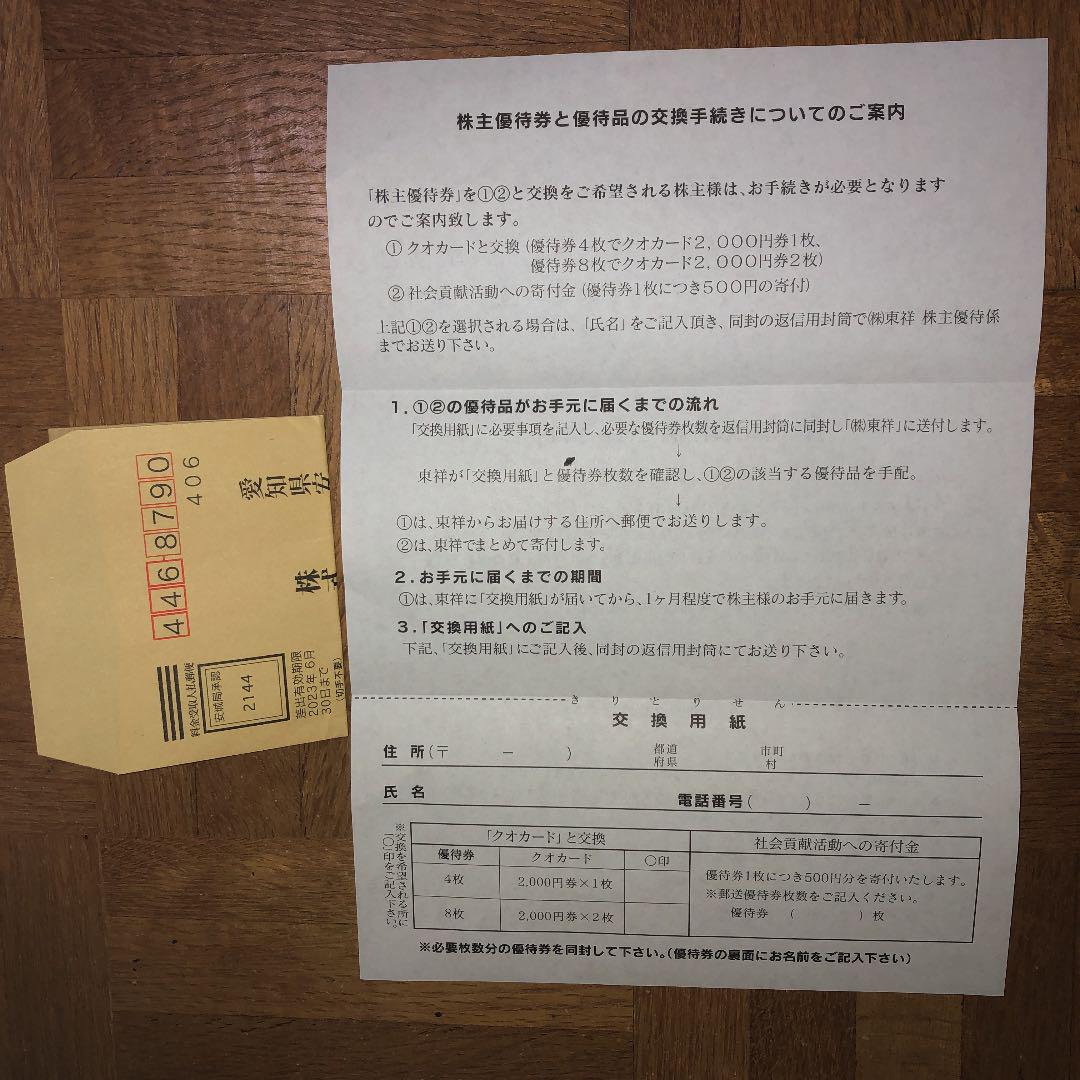 株主優待券と優待品の交換手続きについてのご案内
「株主優待券」を①②と交換をご希望される株主様は、お手続きが必要となります
のでご案内致します。
① クオカードと交換 (優待券4枚でクオカード2,000円券1枚、
優待券8枚でクオカード2,000円券2枚)
② 社会貢献活動への寄付金 (優待券1枚につき500円の寄付)
上記①②を選択される場合は、「氏名」をご記入頂き、同封の返信用封筒で㈱東祥 株主優待係
までお送り下さい。
1.①②の優待品がお手元に届くまでの流れ
「交換用紙」に必要事項を記入し、必要な優待券枚数を返信用封筒に同封し「㈱東祥」に送付します。
↓
東祥が「交換用紙」と優待券枚数を確認し、①②の該当する優待品を手配。
↓
①は、東祥からお届けする住所へ郵便でお送りします。
②は、東祥でまとめて寄付します。
2.お手元に届くまでの期間
①は、東祥に「交換用紙」が届いてから、1ヶ月程度で株主様のお手元に届きます。
3.「交換用紙」へのご記入
下記、「交換用紙」にご記入後、同封の返信用封筒にてお送り下さい。
きりとりせん
交換用紙
住所(〒 － ) 都道府県 市町村
氏名 電話番号( ) －
※交換を希望される所に
「〇」印をご記入下さい。
「クオカード」と交換 社会貢献活動への寄付金
優待券 クオカード 〇印
4枚 2,000円券×1枚
8枚 2,000円券×2枚
優待券1枚につき500円分を寄付いたします。
※郵送優待券枚数をご記入ください。
優待券 ( ) 枚
※必要枚数分の優待券を同封して下さい。(優待券の裏面にお名前をご記入下さい)
4468790
406
愛知県安
株式
料金受取人払郵便
安城局承認
2144
差出有効期限
2023年6月
30日まで
(切手不要)